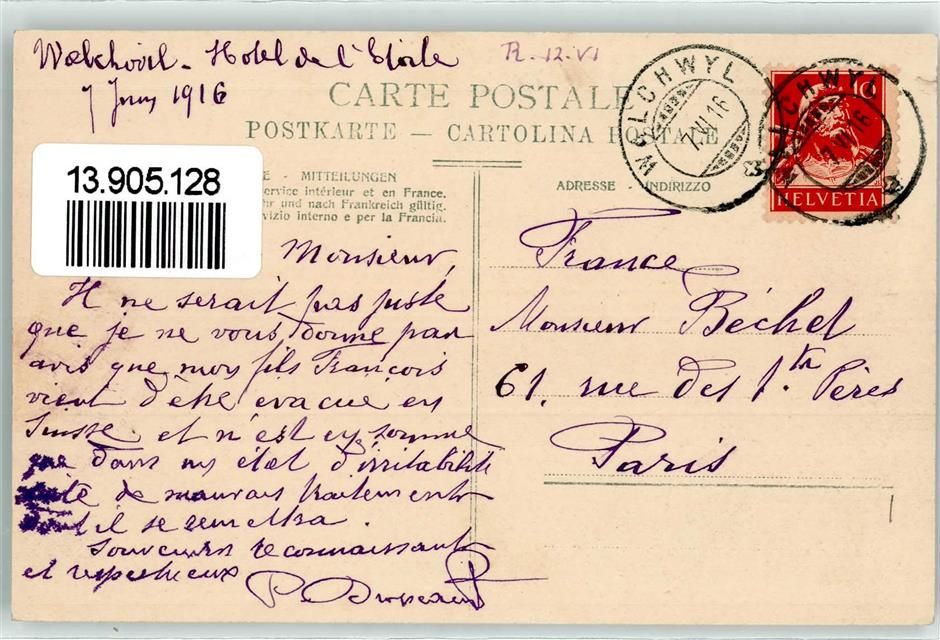 Walchwil - Hotel de l'Etoile
7 Juin 1916
R. 12. VI
CARTE POSTALE
POSTKARTE — CARTOLINA POSTALE
WALCHWYL
7.VI.16
WALCHWYL
7.VI.16
10
HELVETIA
13.905.128
E - MITTEILUNGEN
service intérieur et en France.
hr und nach Frankreich gültig.
vizio interno e per la Francia.
ADRESSE - INDIRIZZO
Monsieur,
Il ne serait pas juste
que je ne vous donne pas
avis que mon fils François
vient d'être évacué en
Suisse et n'est en somme
que dans un état d'irritabilité
de mauvais traitement
dont il se remettra.
Souvenirs reconnaissants
et respectueux
France
Monsieur Béchet
61. rue des Sts Pères
Paris